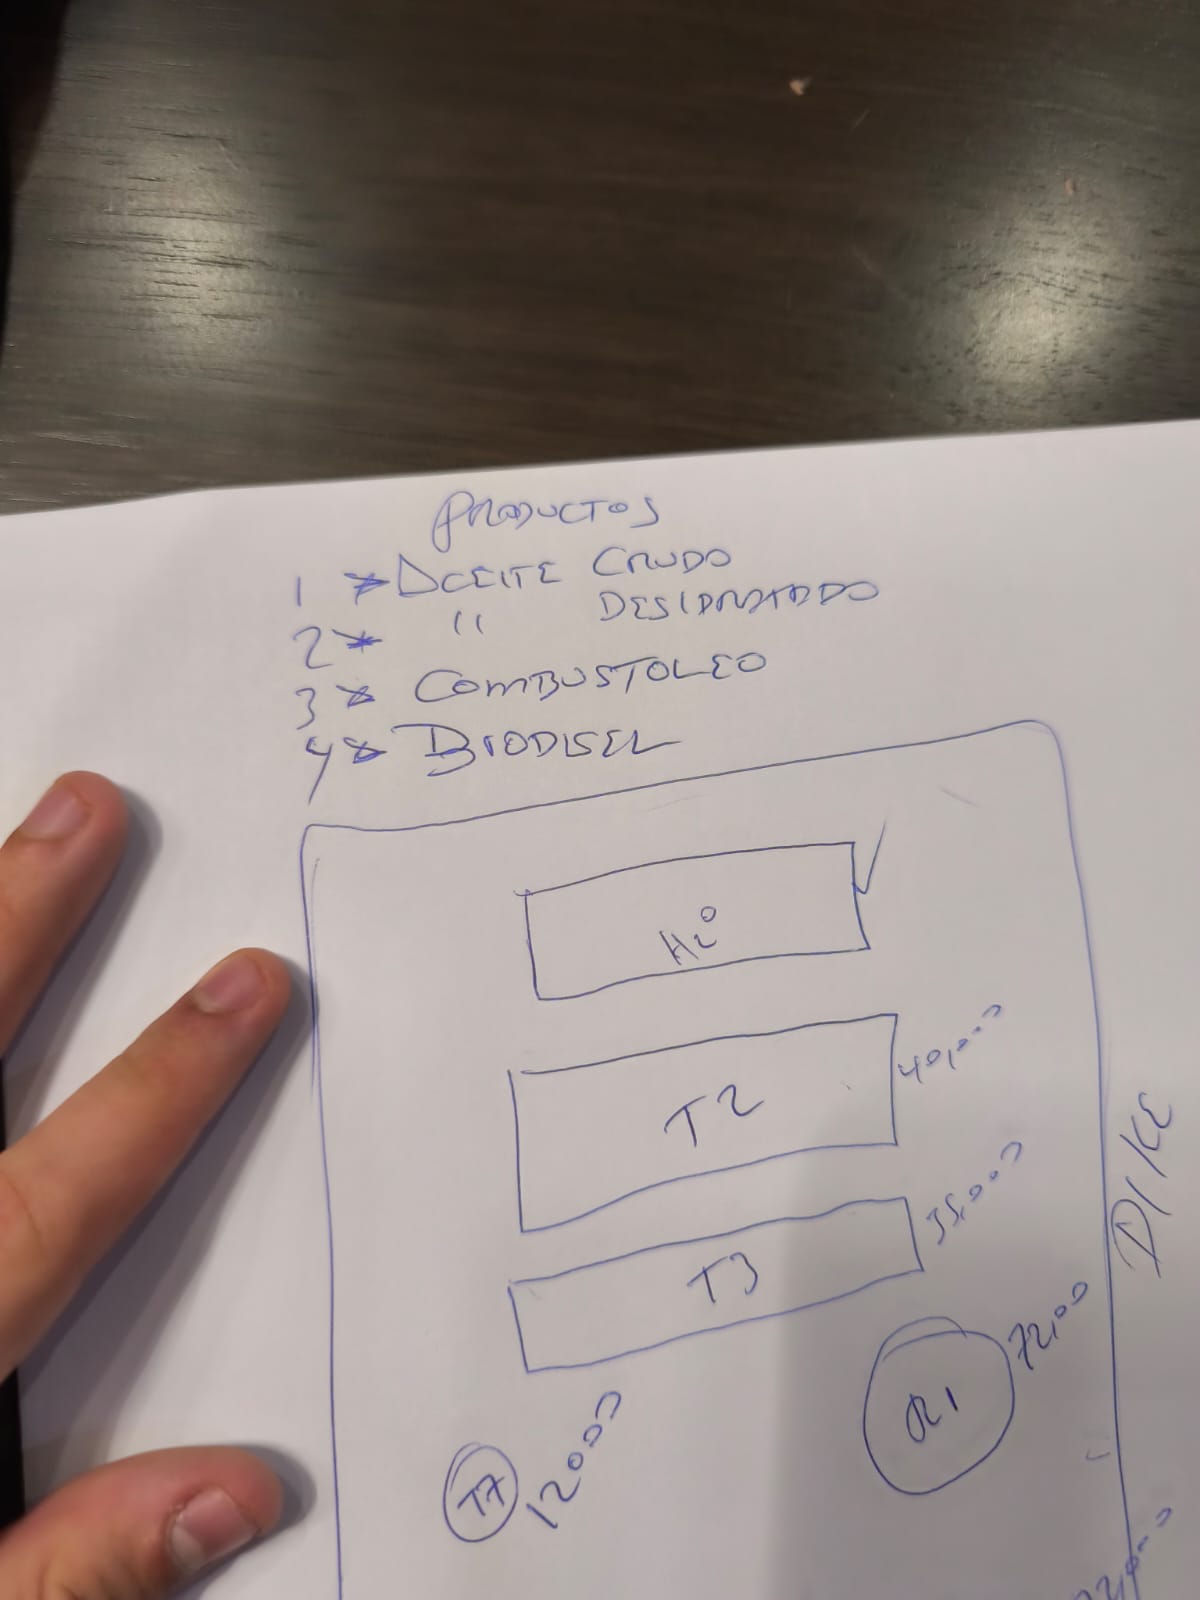 PRODUCTOS
1 * ACEITE CRUDO
2 * " DESIDRATADO
3 * COMBUSTOLEO
4 * BIODISEL
H2O
T2
40,000
T3
35,000
DIKE
R1
72,00
T7
12000